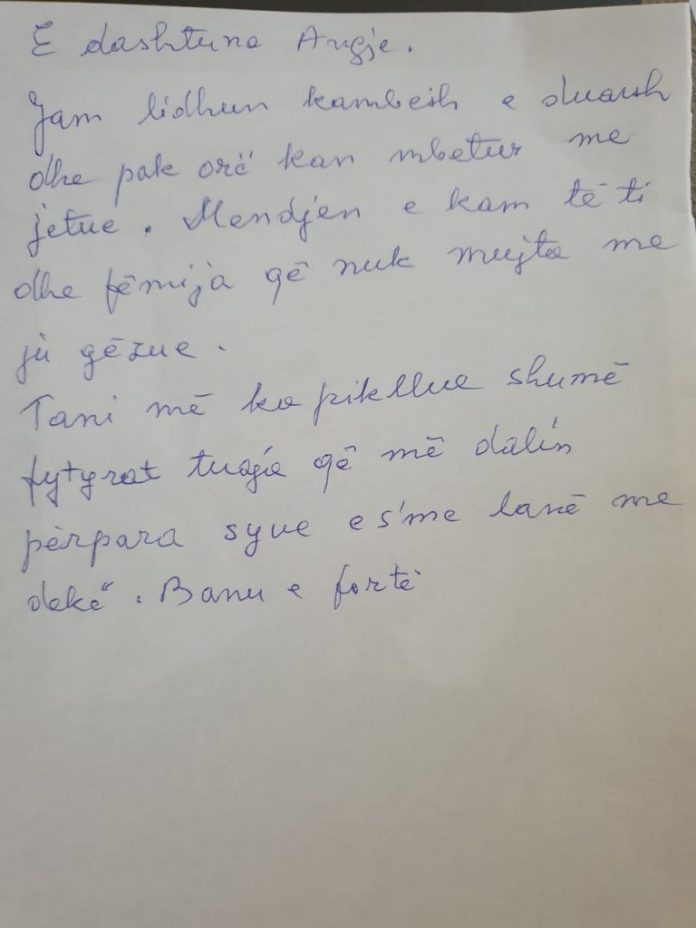 E dashtuna Angje.
Jam lidhun kambësh e duarsh
dhe pak orë kan mbetur me
jetue. Mendjen e kam të ti
dhe fëmija që nuk mujta me
jù gëzue.
Tani më ka pikllue shumë
fytyrat tuaja që më dalin
përpara syve e s'me lanë me
dekë". Banu e fortë